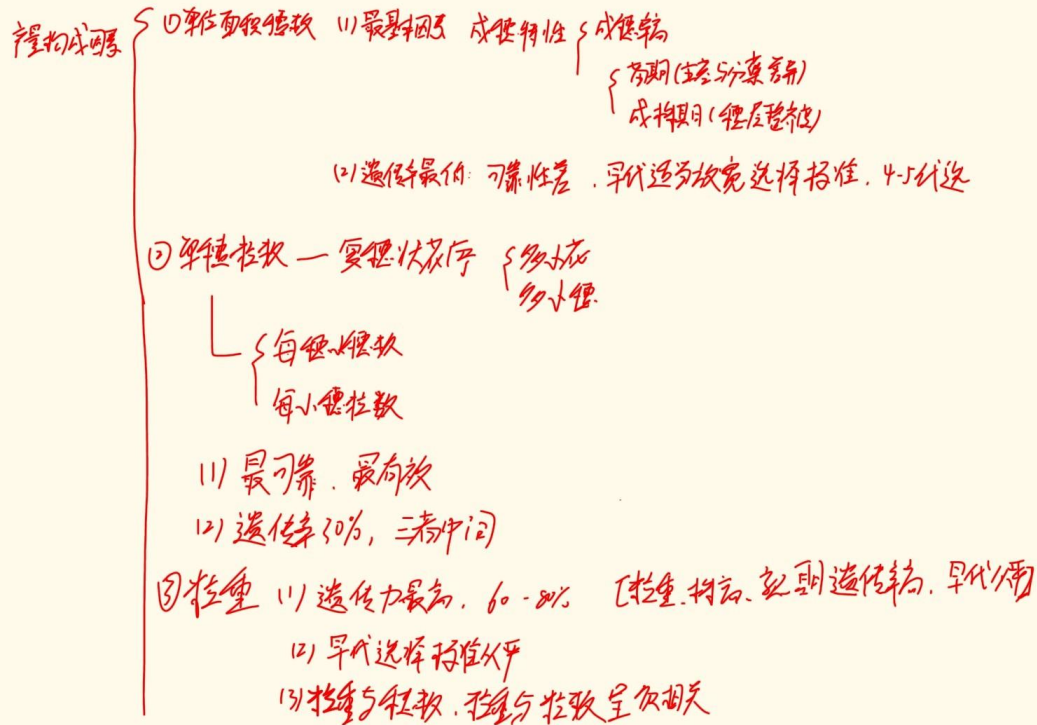 产量构成因素
①单位面积穗数 (1)最基本因素 成穗特性 成穗率高
苗期(生态与分蘖差异)
成株期(穗层整齐)
(2)遗传率最低:可靠性差,早代适当放宽选择标准,4-5代选
②单穗粒数—复穗状花序 多小花
多小穗
每穗小穗数
每小穗粒数
(1)最可靠、最有效
(2)遗传率30%,三者中间
③粒重 (1)遗传力最高,60-80% [粒重、株高、 期遗传率高,早代从严]
(2)早代选择标准从严
(3)粒重与穗数、粒重与粒数呈负相关